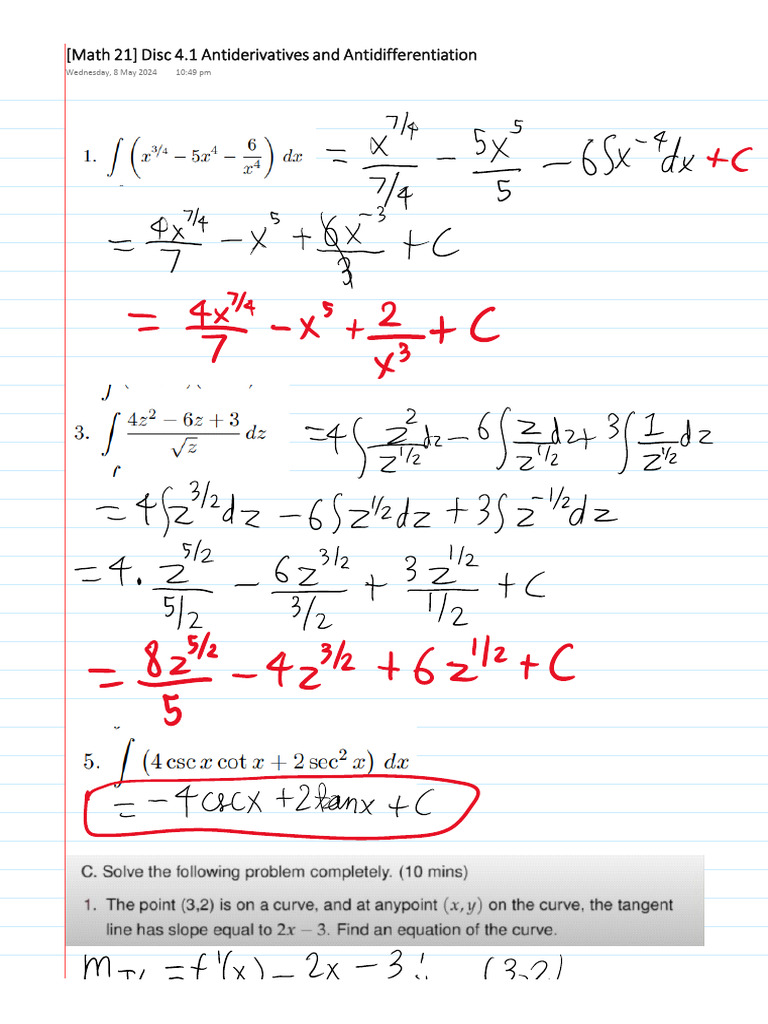 [Math 21] Disc 4.1 Antiderivatives and Antidifferentiation
Wednesday, 8 May 2024 10:49 pm
1. ∫ (x^{3/4} − 5x^4 − 6/x^4) dx = x^{7/4}/(7/4) − 5x^5/5 − 6∫x^{−4}dx + C
= 4x^{7/4}/7 − x^5 + 6x^{−3}/3 + C
= 4x^{7/4}/7 − x^5 + 2/x^3 + C
3. ∫ (4z^2 − 6z + 3)/√z dz = 4∫ z^2/z^{1/2} dz − 6∫ z/z^{1/2} dz + 3∫ 1/z^{1/2} dz
= 4∫z^{3/2}dz − 6∫z^{1/2}dz + 3∫z^{−1/2}dz
= 4 · z^{5/2}/(5/2) − 6z^{3/2}/(3/2) + 3z^{1/2}/(1/2) + C
= 8z^{5/2}/5 − 4z^{3/2} + 6z^{1/2} + C
5. ∫ (4 csc x cot x + 2 sec^2 x) dx
= −4cscx + 2tanx + C
C. Solve the following problem completely. (10 mins)
1. The point (3,2) is on a curve, and at anypoint (x, y) on the curve, the tangent
line has slope equal to 2x − 3. Find an equation of the curve.
= f'(x) = 2x − 3 (3,2)